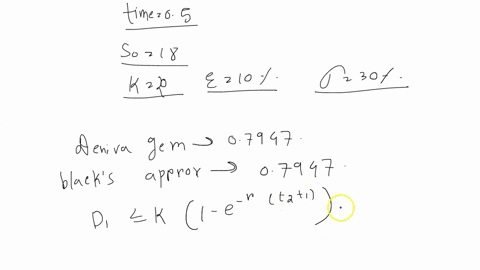 time=0.5
S0=18
K=20 ε=10%. σ=30%.
Deriva gem → 0.7947.
black's approx → 0.7947.
D1 ≤ K (1-e^-r (t2+1)).